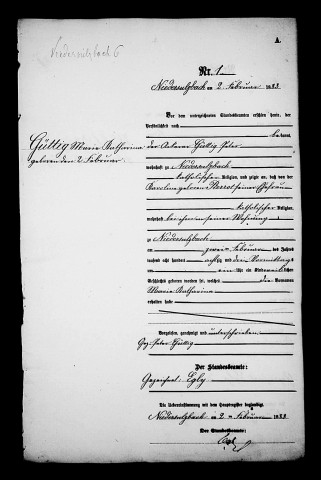 Niedersulzbach 6
A.
Nr. 1
Niedersulzbach am 2 Februar 1883
Vor dem unterzeichneten Standesbeamten erschien heute, der
Persönlichkeit nach
be kannt,
Güttig Maria Katharina
geboren den 2 Februar
der Ackerer Güttig Peter
wohnhaft zu Niedersulzbach
katholischer Religion, und zeigte an, daß von der
Karolina geborene Pierrot seiner Ehefrau
katholischer Religion,
wohnhaft bei ihm in seiner Wohnung
zu Niedersulzbach
am zwei ten Februar des Jahres
tausend acht hundert achtzig und drei Vormittags
um ein Uhr ein Kind weiblichen
Geschlechts geboren worden sei, welches die Vornamen
Maria Katharina
erhalten habe
Vorgelesen, genehmigt und unterschrieben
Gez. Peter Güttig
Der Standesbeamte:
Gezeichnet: Egly
Die Uebereinstimmung mit dem Hauptregister beglaubigt
Niedersulzbach am 2 ten Februar 1883
Der Standesbeamte:
Egly